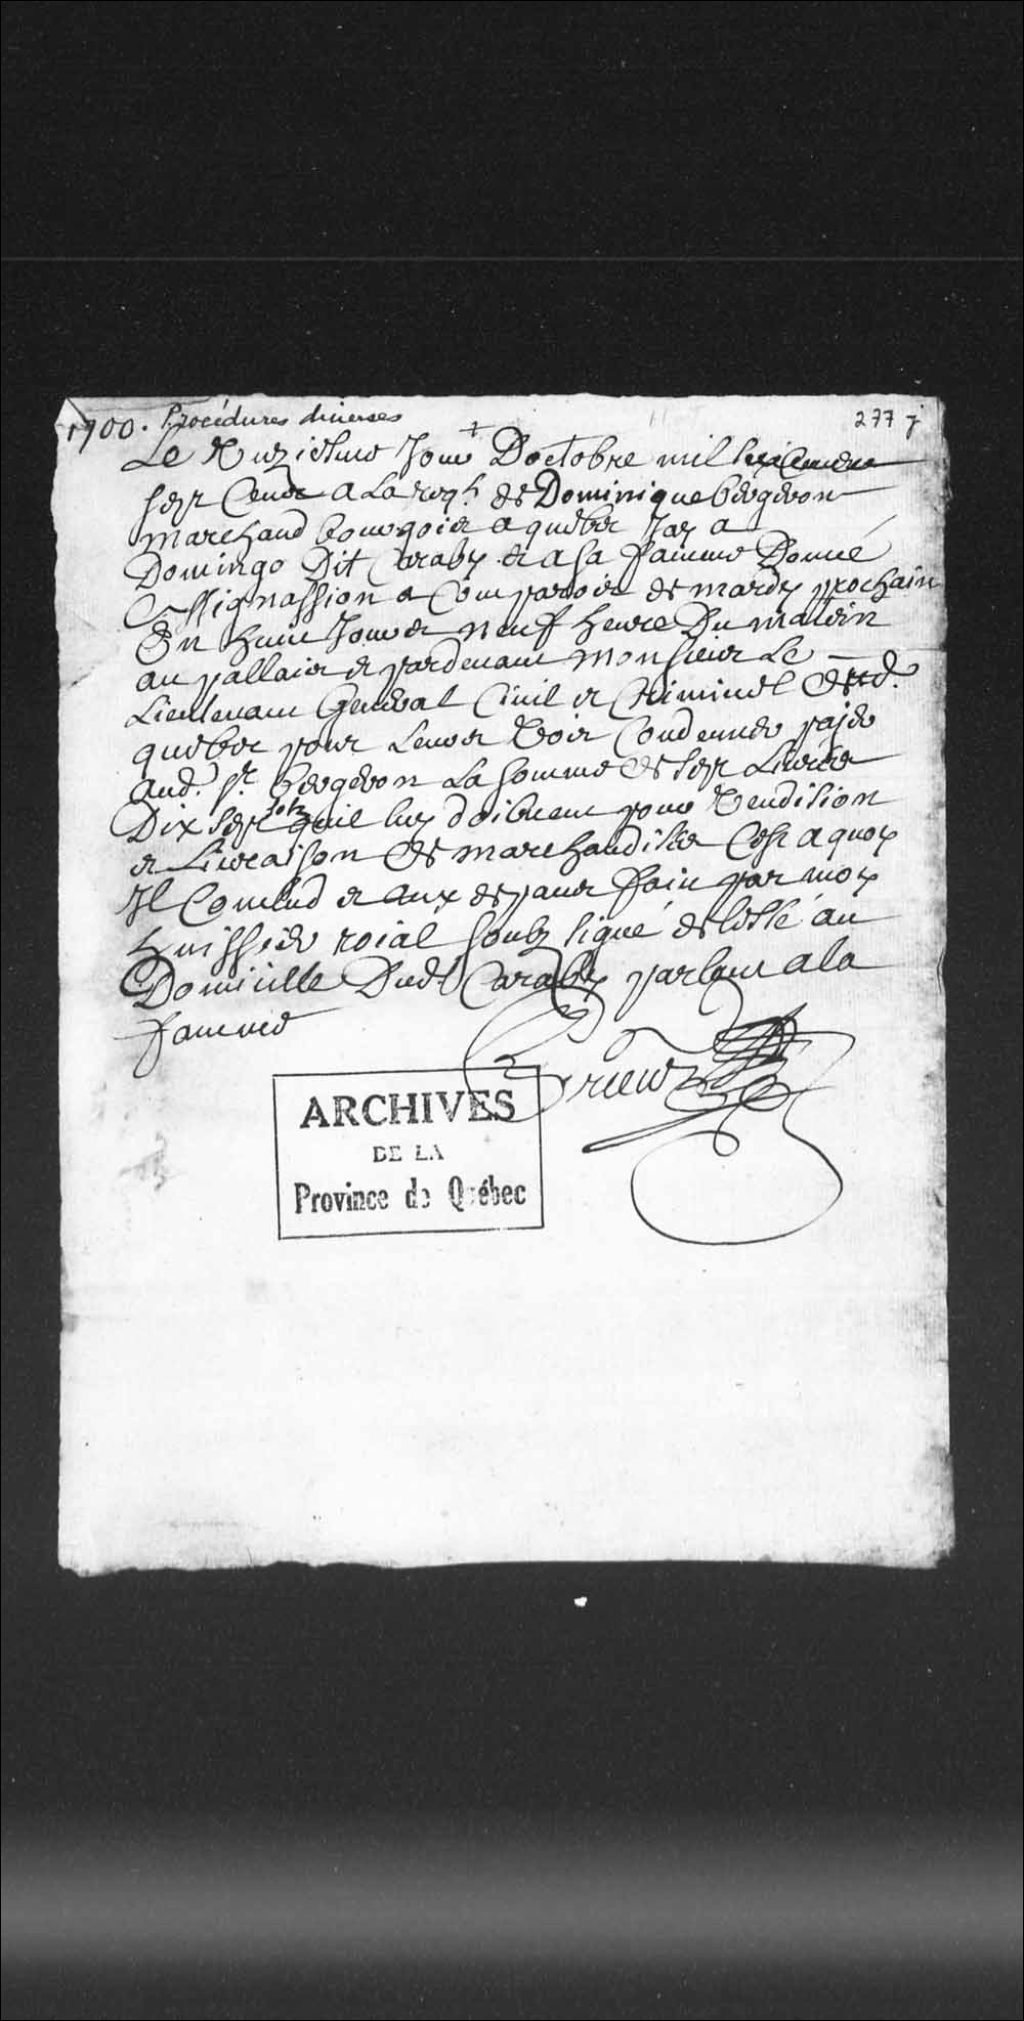 1700. Procédures diverses
277 j
Le Unziesme Jour Doctobre mil
sept Cents a La reqt de Dominique bergeron
marchand bourgois a quebec Jay a
Domingo Dit Caraby et a sa famme Donné
Assignassion a Comparoir de mardy prochain
En huit Jours neuf heure Du matin
au pallais et pardevant monsieur Le
Lieutenant General Civil et Criminel
quebec pour Levoir Voir Condemner paier
aud. sr. bergeron La somme de sept Livres
Dix sept solz quil luy doibvent pour Vendision
et Livraison de marchandise Cest a quoy
Il Conclud et aux despans fait par moy
huissier roial soubz signé delessé au
Domicille Dudt Caraby parlant a la
famme
Prieur
ARCHIVES
DE LA
Province de Québec